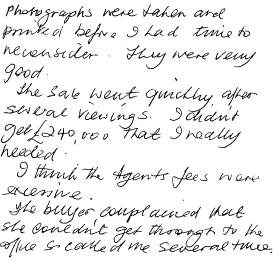 Photographs were taken and
printed before I had time to
reconsider. They were very
good.
The sale went quickly after
several viewings. I didn't
get £240,000 that I really
needed.
I think the Agents fees were
excessive.
The buyer complained that
she couldn't get through to the
office so called me several times.